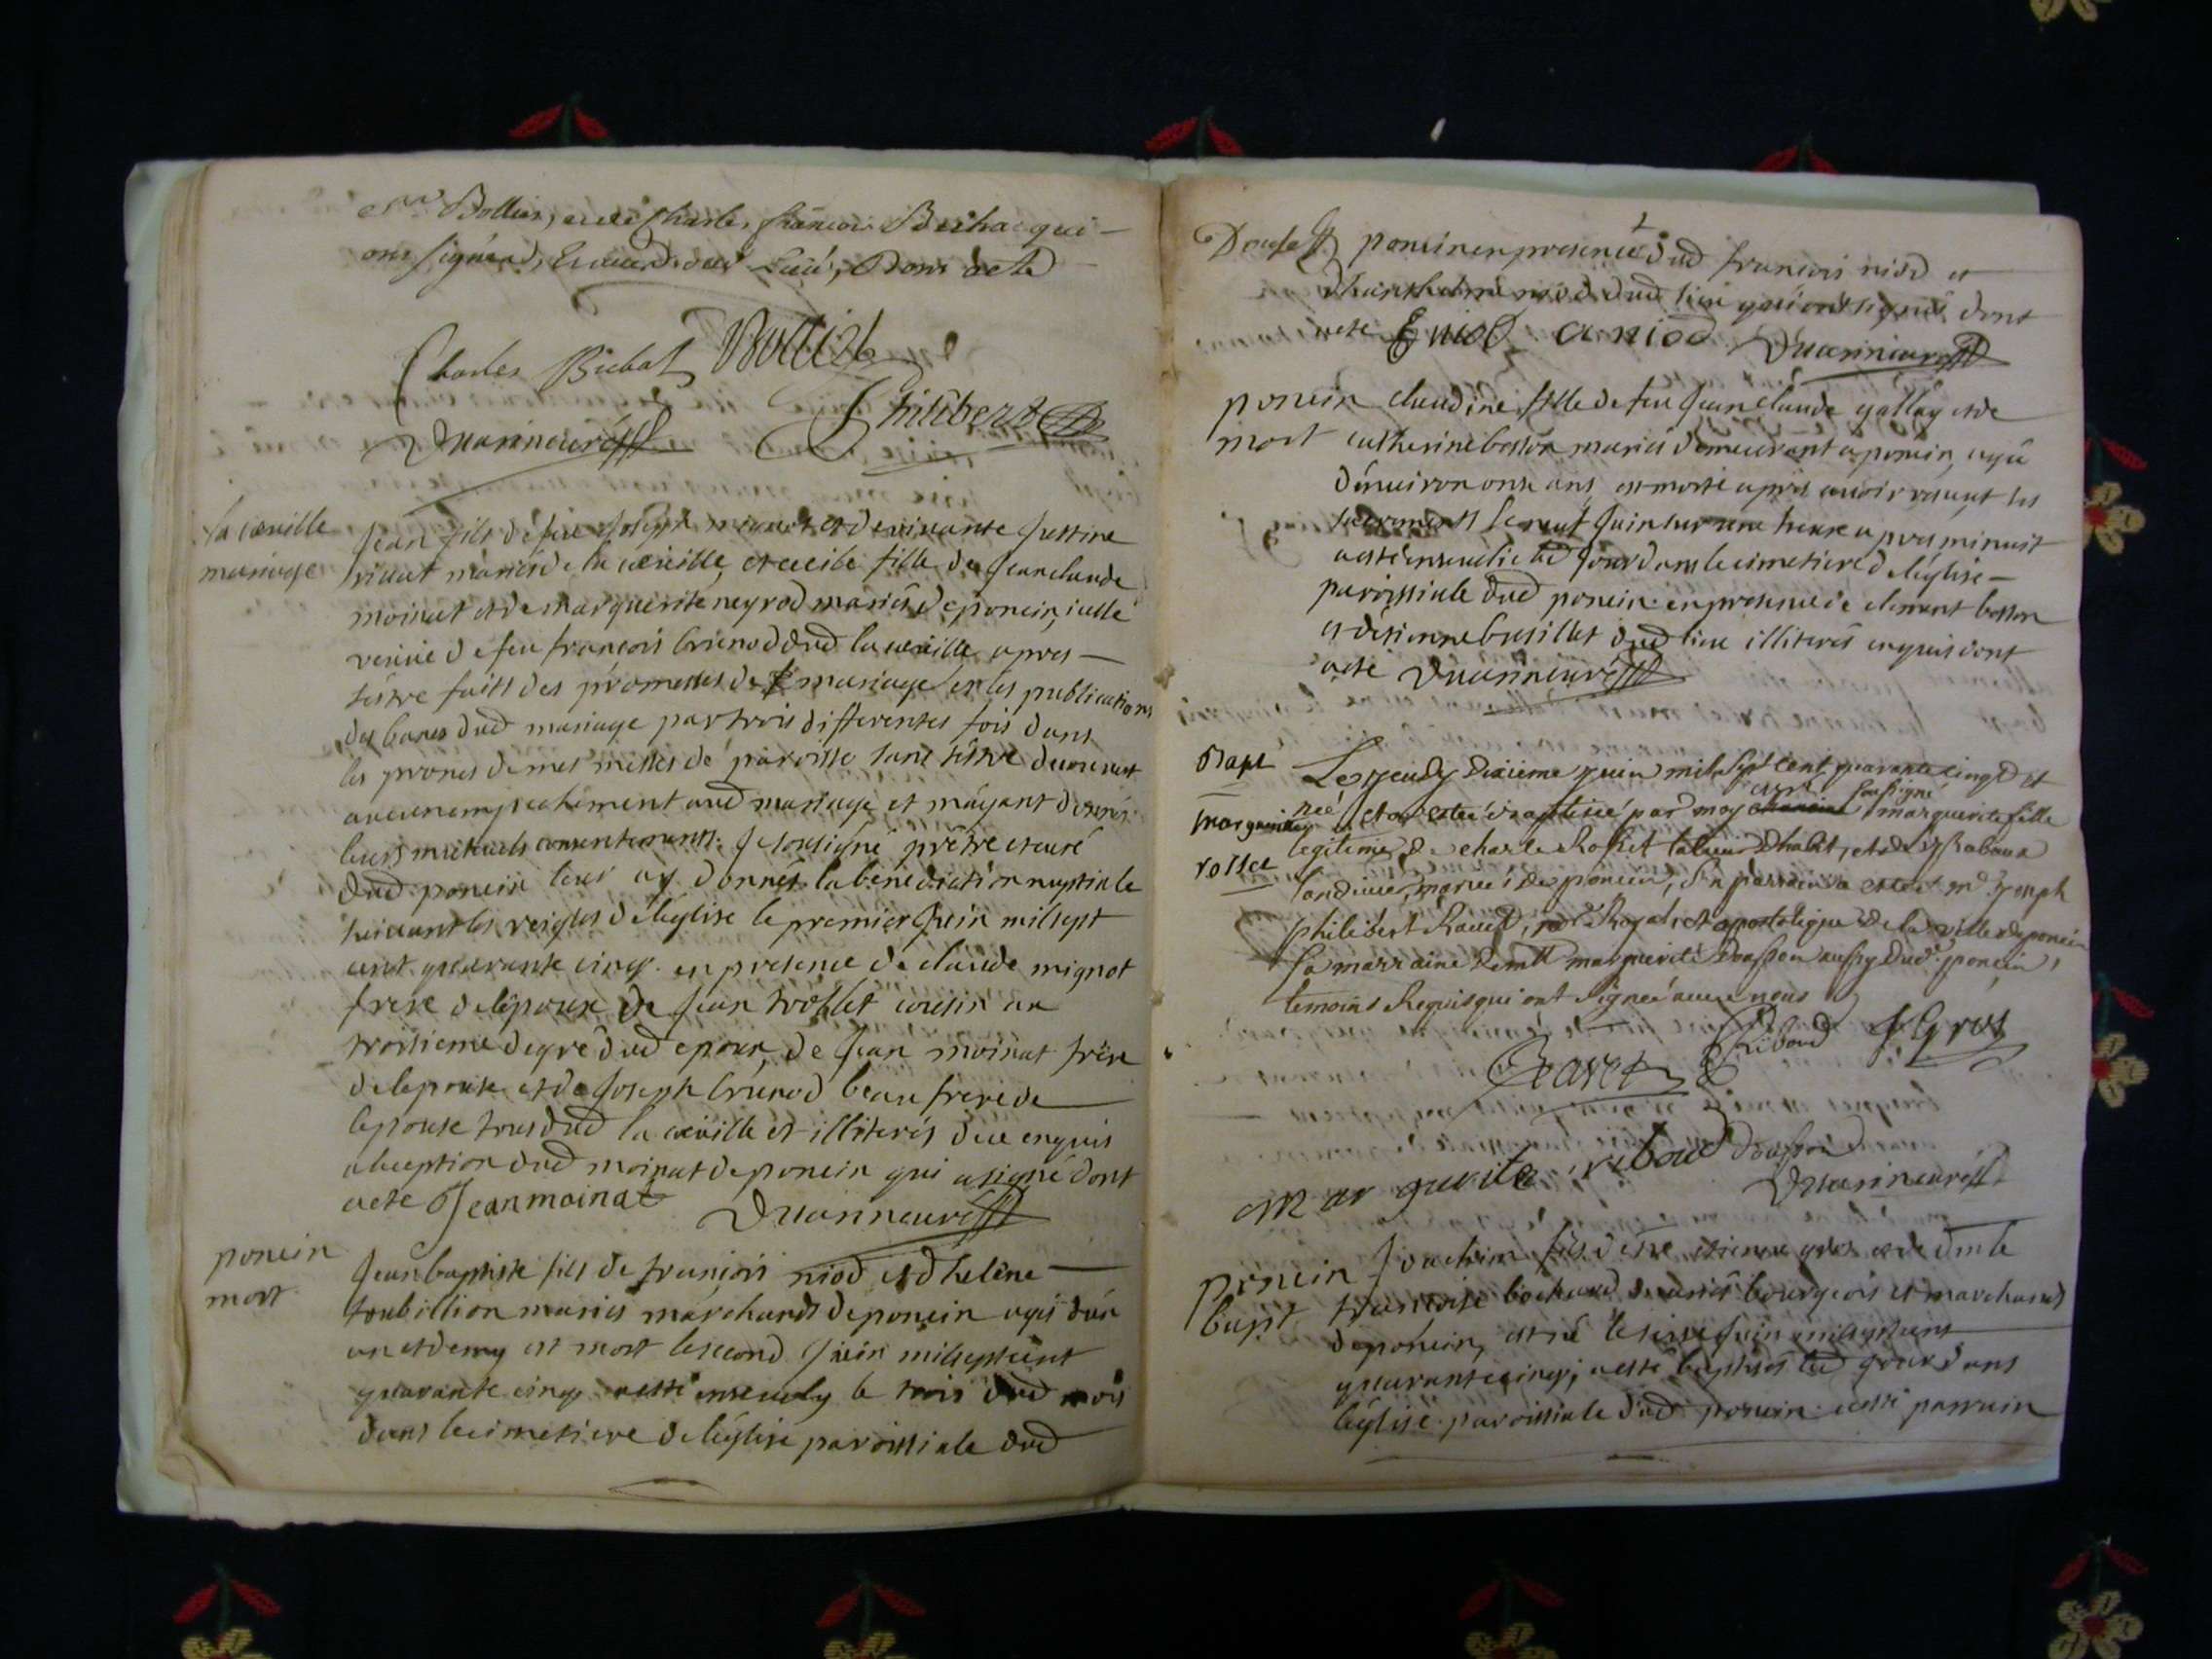 Bollier, et de Charles françois Bichat qui
ont signéz Dont acte
Charles Bichat Bolliet
Philibert
Duanncuré
la cueille
mariage
Jean fils de feu Joseph mignot et de vivante Justine
mariés de la cueille, et cecile fille de Jean claude
moinat et de marguerite neyrod mariés de poncin, icelle
veuve de feu françois brunod dud la cueille apres
sestre faits des promesses de mariage et les publications
des bans dud mariage par trois differentes fois dans
les prones de mes messes de paroisse sans sestre decouvert
aucun empechement aud mariage et mayant donnés
leurs mutuels consentements. Je soussigné prêtre et curé
dud poncin leur ay donnés la benediction nuptiale
suivant les reigles de leglise le premier Juin mil sept
cent quarante cinq. en presence de claude mignot
frere de lepoux de Jean trollet cousin au
troisieme degré dud epoux, de Jean moinat frère
de lepouse et de Joseph brunod beau frere de
lepouse tous dud la cueille et illiterés deue enquis
a lexeption dud moinat de poncin qui a signé dont
acte Jean moinat
Duanncuré
poncin
mort
Jean baptiste fils de françois niod et dhelène
toubillion mariés marchands de poncin agé dun
an et demy est mort le second Juin mil sept cent
quarante cinq a esté ensevely le trois dud mois
dans le cimetiere de leglise paroissiale dud
poncin en presence dud francois niod et
niod dud lieu qui ont signés dont
acte E niod a niod Duanncuré
poncin
mort
claudine fille de feu Jean claude gallay et de
catherine bosson mariés demeurant a poncin, agée
denviron onze ans est morte apres avoir receut les
sacrements le neuf Juin sur une heure apres minuit
a esté ensevelie led jour dans le cimetiere de leglise
paroissiale dud poncin en presence de clement bosson
et destienne busillet dud lieu illiterés enquis dont
acte Duanncuré
Bapt
marguerite
rosset
Le jeudy dixieme juin mil sept cent quarante cinq et
neé et a estée baptiseé par moy curé soussigné marguerite fille
legitime de charle Rosset talieur dhabit, et de
mariés de poncin, Son parrain a esté Mr Joseph
philibert Ravet, Royal et apostolique de la ville de poncin
Sa marraine demlle marguerite aussy dud poncin,
temoins Requis qui ont signeé avec nous
Ravet Riboud J Gros
Marguerite riboud
Duanncuré
poncin
bapt
Joachim fils de sre etienne gros et de dmle
françoise bochard mariés bourgeois et marchands
de poncin, est né le seize Juin mil sept cent
quarante cinq; a esté baptisés led jour dans
leglise paroissiale dud poncin a esté parrain